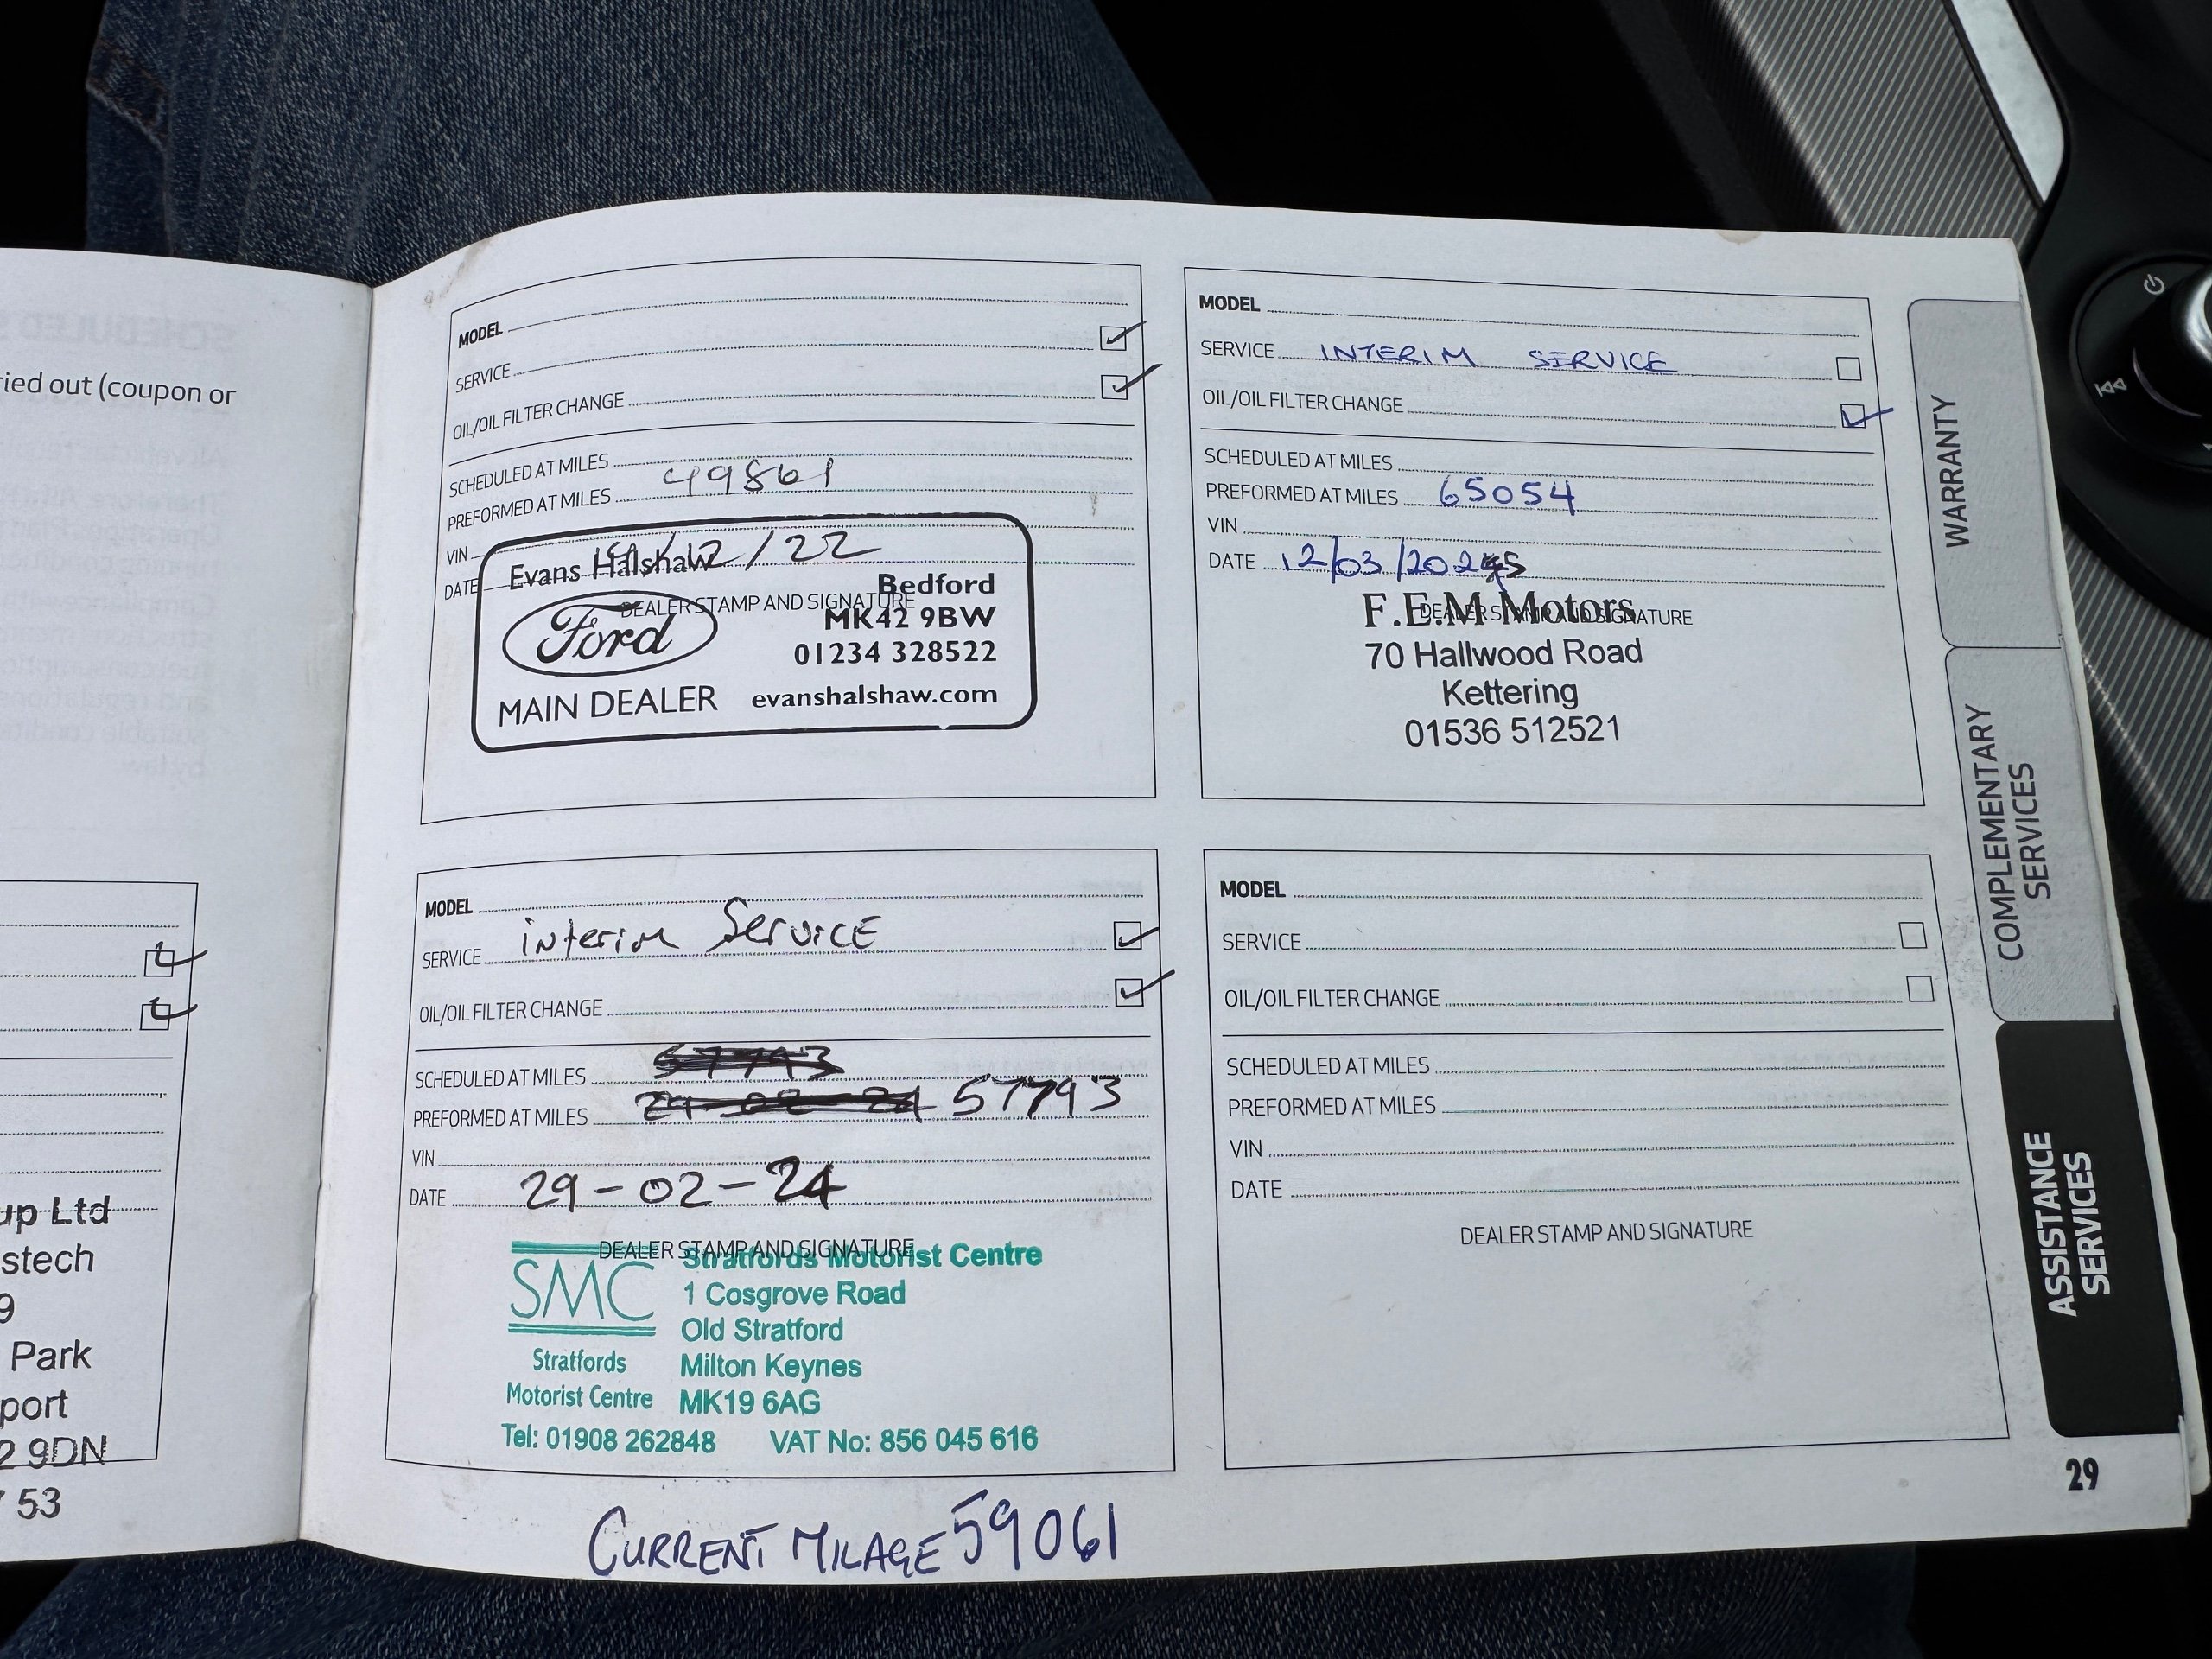 SCHEDULED S
ried out (coupon or
up Ltd
stech
9
Park
port
2 9DN
7 53
MODEL
SERVICE
OIL/OIL FILTER CHANGE
SCHEDULED AT MILES
PREFORMED AT MILES 49861
VIN
DATE /12/22
DEALER STAMP AND SIGNATURE
Evans Halshaw
Bedford
MK42 9BW
Ford
01234 328522
MAIN DEALER evanshalshaw.com
MODEL
SERVICE INTERIM SERVICE
OIL/OIL FILTER CHANGE
SCHEDULED AT MILES
PREFORMED AT MILES 65054
VIN
DATE 12/03/2025
DEALER STAMP AND SIGNATURE
F.E.M Motors
70 Hallwood Road
Kettering
01536 512521
MODEL
SERVICE interim Service
OIL/OIL FILTER CHANGE
SCHEDULED AT MILES 57793
PREFORMED AT MILES 29-02-24 57793
VIN
DATE 29-02-24
DEALER STAMP AND SIGNATURE
SMC
Stratfords Motorist Centre
1 Cosgrove Road
Old Stratford
Stratfords
Milton Keynes
Motorist Centre
MK19 6AG
Tel: 01908 262848 VAT No: 856 045 616
MODEL
SERVICE
OIL/OIL FILTER CHANGE
SCHEDULED AT MILES
PREFORMED AT MILES
VIN
DATE
DEALER STAMP AND SIGNATURE
CURRENT MILAGE 59061
WARRANTY
COMPLEMENTARY
SERVICES
ASSISTANCE
SERVICES
29